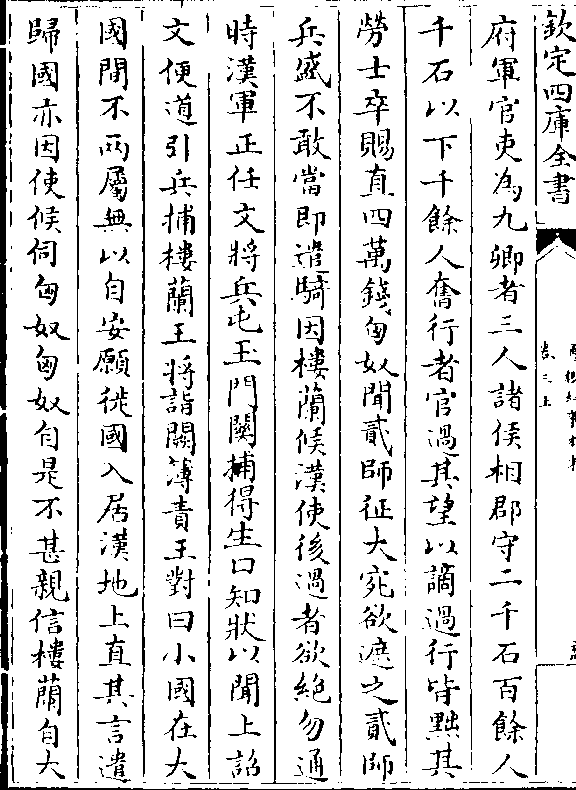 欽定四庫全書
卷三上
府軍官吏為九卿者三人諸侯相郡守二千石百餘人
千石以下千餘人奮行者官過其望以謫過行皆黜其
勞士卒賜直四萬錢匈奴聞貳師征大宛欲遮之貳師
兵盛不敢當即遣騎因樓蘭候漢使後過者欲絶勿通
時漢軍正任文將兵屯玉門闗捕得生口知狀以聞上詔
文便道引兵捕樓蘭王將詣闕簿責王對曰小國在大
國間不兩屬無以自安願徙國入居漢地上直其言遣
歸國亦因使候伺匈奴匈奴自是不甚親信樓蘭自大